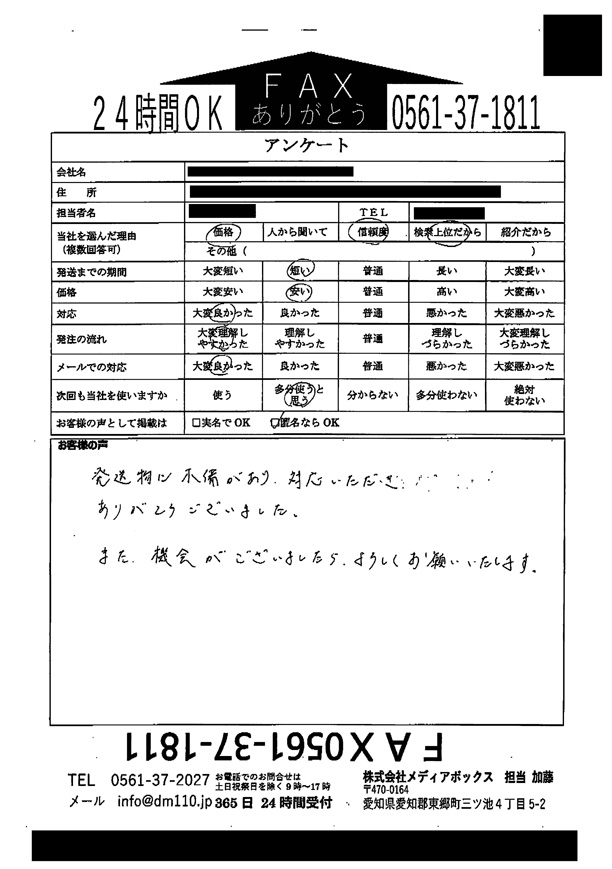 FAX
ありがとう
24時間OK 0561-37-1811
アンケート
会社名
住　所
担当者名 TEL
当社を選んだ理由 価格 人から聞いて 信頼度 検索上位だから 紹介だから
（複数回答可） その他（ ）
発送までの期間 大変短い 短い 普通 長い 大変長い
価格 大変安い 安い 普通 高い 大変高い
対応 大変良かった 良かった 普通 悪かった 大変悪かった
発注の流れ 大変理解しやすかった 理解しやすかった 普通 理解しづらかった 大変理解しづらかった
メールでの対応 大変良かった 良かった 普通 悪かった 大変悪かった
次回も当社を使いますか 使う 多分使うと思う 分からない 多分使わない 絶対使わない
お客様の声として掲載は □実名でOK □匿名ならOK
お客様の声
発送物に不備があり、対応いただき
ありがとうございました。
また、機会がございましたら、よろしくお願いいたします。
FAX0561-37-1811
TEL 0561-37-2027 お電話でのお問合せは土日祝祭日を除く9時～17時
メール info@dm110.jp 365日 24時間受付
株式会社メディアボックス 担当 加藤
〒470-0164
愛知県愛知郡東郷町三ツ池4丁目5-2